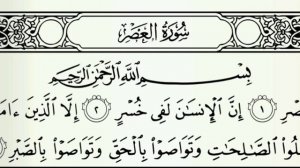 سُورَةُ العَصْرِ
بِسْمِ اللَّهِ الرَّحْمَٰنِ الرَّحِيمِ
١ إِنَّ الْإِنسَانَ لَفِي خُسْرٍ ٢ إِلَّا الَّذِينَ ءَامَ
الصَّالِحَاتِ وَتَوَاصَوْا بِالْحَقِّ وَتَوَاصَوْا بِالصَّبْرِ